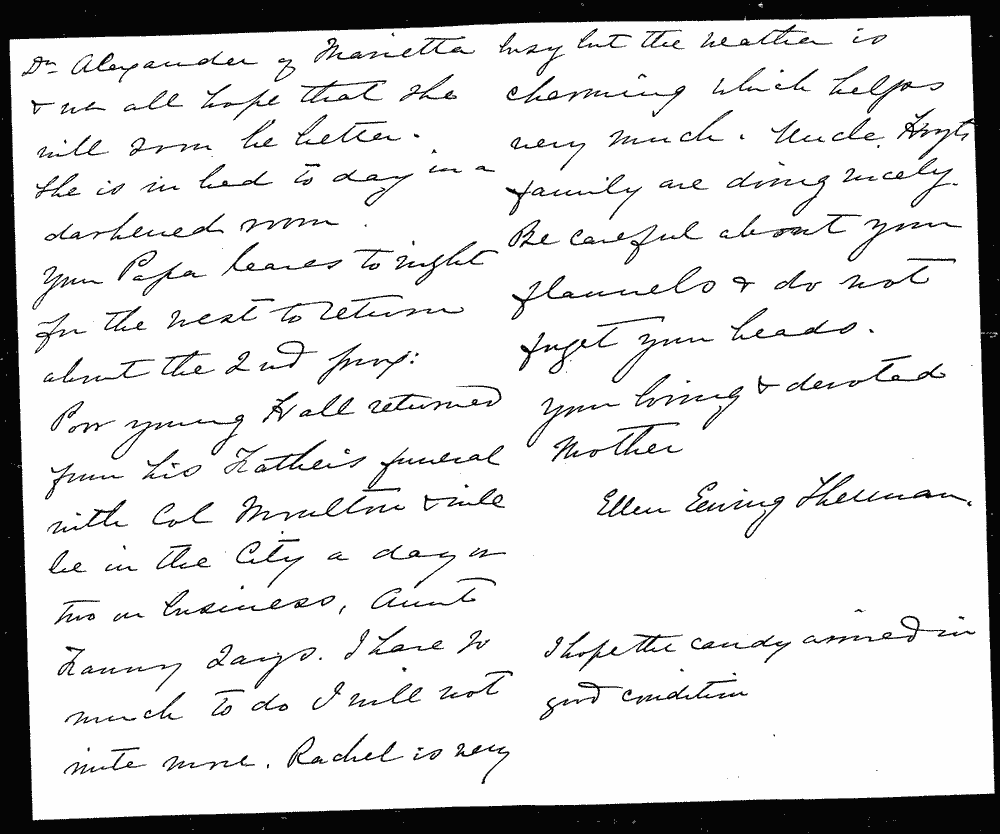 Dr Alexander of Marietta
& we all hope that she
will soon be better.
She is in bed to day in a
darkened room.
Your Papa leaves to night
for the west to return
about the 2nd prox:
Poor young Hall returned
from his Father's funeral
with Col Moulton & will
be in the City a day or
two on business, Aunt
Fanny says. I have so
much to do I will not
write more. Rachel is very
busy but the weather is
charming which helps
very much. Uncle Hoyt's
family are doing nicely.
Be careful about your
flannels & do not
forget your beads.
Your loving & devoted
Mother
Ellen Ewing Sherman.
I hope the candy arrived in
good condition